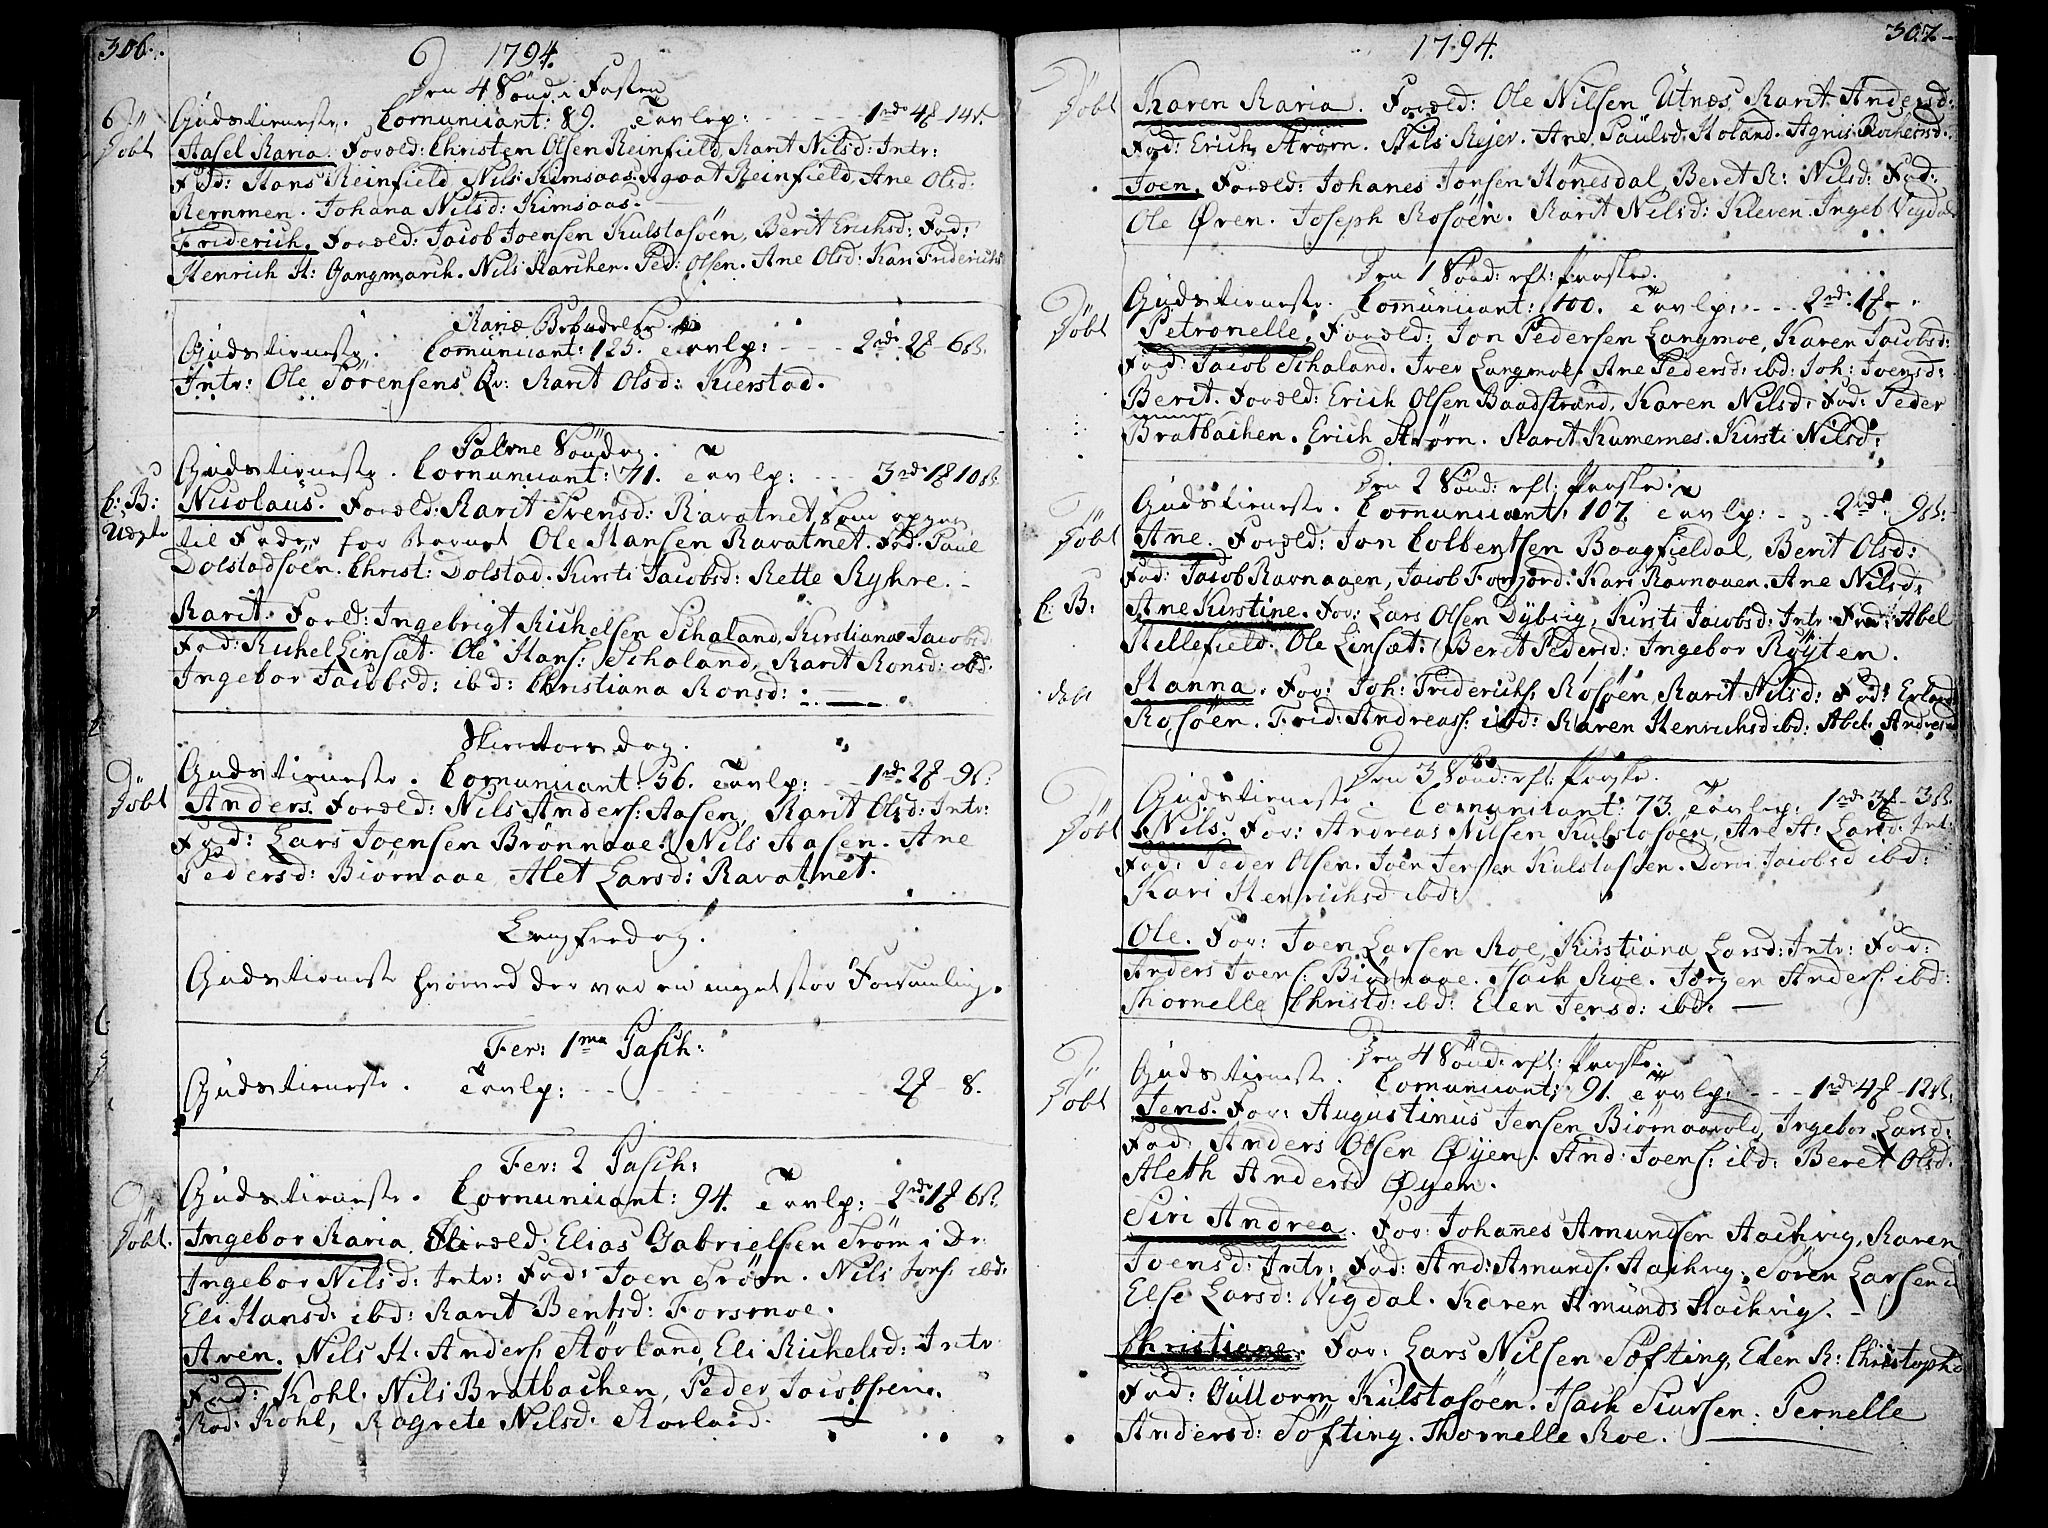 306.
1794.
Den 4 Sönd: i Fasten
Gudstieneste. Comunicant: 89. Tavlp: 1rd 4ß 14s.
Döbt
Aasel Maria. Foræld: Christen Olsen Reinfield, Marit Nilsd: Intr:
Fad: Hans Reinfield, Nils Rimsaas. Agaat Reinfield, Ane Olsd:
Remmen. Johana Nilsd: Rimsaas.
Friderich. Foræld: Jacob Joensen Kulstasöen, Berit Erichsd: Fad:
Henrich H: Gangmarch. Nils Marchen. Ped: Olsen. Ane Olsd: Kari Friderichs
Mariæ Bebudelse
Gudstieneste. Comunicant: 125. Tavlp: 2rd 2ß 6s.
Intr: Ole Sörensens Qv: Marit Olsd: Kierstad.
Palme Söndag.
Gudstieneste. Comunicant: 71. Tavlp: 3rd 1ß 10s
b: B:
Udgte
Nicolaus. Foræld: Marit Svensd: Ravatnet, som opgav
til Fader for barnet Ole Hansen Ravatnet. Fad: Paul
Dolstadsöen. Christ: Dolstad. Kirsti Jacobsd: Mette Myhre.
Marit. Foræld: Ingebrigt Michelsen Schaland, Kirstiana Jacobsd:
Fad: Michel Linsæt. Ole Hans: Schaland, Marit Monsd: ibd:
Ingebor Jacobsd: ibd: Christiana Monsd:
Skiertorsdag.
Gudstieneste. Comunicant: 56. Tavlp: 1rd 2ß 9s:
Döbt
Anders. Foræld: Nils Anders: Aasen, Marit Olsd: Intr:
Fad: Lars Joensen Brönnaae. Nils Aasen. Ane
Pedersd: Biörnaae, Alet Larsd: Ravatnet.
Langfredag.
Gudstieneste hvorved der var en meget stor Forsamling.
Fer: 1ma Pasch:
Gudstieneste. Tavlp: 2ß 8.
Fer: 2 Pasch:
Gudstieneste. Comunicant: 94. Tavlp: 2rd 1ß 6s.
Döbt.
Ingebor Maria. Foræld: Elias Gabrielsen Tröm i Dr:
Ingebor Nilsd: Intr: Fad: Joen Tröm. Nils Jons: ibd:
Eli Hansd: ibd: Marit Bentsd: Forsmoe.
Aren. Nils H: Anders: Störland, Eli Michelsd: Intr:
Fad: Kohl. Nils Bratbachen, Peder Jacobsen.
Mad: Kohl, Magrete Nilsd: Storland.
307
1794.
Döbt
Karen Maria. Foræld: Ole Nilsen Utnæs, Marit Andersd:
Fad: Erich Strörn. Nils Mejer. Ane Paulsd: Holand. Agnis Mechelsd:
Joen. Foræld: Johanes Jonsen Hönesdal, Beret M: Nilsd: Fad:
Ole Øren. Joseph Rosöen. Marit Nilsd: Kleven. Ingeb: Vigdal
Den 1 Sönd: eft: Paaske.
Gudstieneste. Comunicant: 100. Tavlp: 2rd 1ß
Döbt
Petronelle. Foræld: Jon Pedersen Langmoe, Karen Jacobsd:
Fad: Jacob Schaland. Iver Langmoe. Ane Pedersd: ibd: Joh: Joensd:
Berit. Foræld: Erich Olsen Baadstrand, Karen Nilsd: Fad: Peder
Bratbachen. Erich Strörn. Marit Kumernes. Kirsti Nilsd:
Den 2 Sönd: eft: Paaske:
Gudstieneste. Comunicant: 107. Tavlp: 2rd: 9s:
Döbt
Ane. Foræld: Jon Colbentsen Baagfieldal, Berit Olsd:
Fad: Jacob Ravnaaen, Jacob Forfjord. Kari Ravnaaen. Ane Nilsd:
b: B:
Ane Kirstine. For: Lars Olsen Dybvig, Kirsti Jacobsd: Intr: Fad: Abel
Hellefield. Ole Linsæt. Beret Pedersd: Ingebor Röyten.
Hanna. For: Joh: Friderichs: Rosöen, Marit Nilsd: Fad: Erland
Rosöen. Frid: Andreass: ibd: Karen Henrichsd ibd: Abel Andreasd
Den 3 Sönd: eft: Paaske.
Gudstieneste. Comunicant: 73. Tavlp: 1rd 3ß 3s.
Döbt
Nils. For: Andreas Nilsen Kulstasöen, Ane A: Larsd: Int:
Fad: Peder Olsen. Joen Jensen Kulstasöen. Dorte Jacobsd ibd:
Kari Henrichsd ibd:
Ole. For: Joen Larsen Moe, Kirstiana Larsd: Intr: Fad:
Anders Joens: Biörnaae. Isach Moe. Jörgen Anders: ibd:
Thornelle Christd: ibd: Elen Jensd: ibd:
Den 4 Sönd: eft: Paaske.
Gudstieneste. Comunicant: 91. Tavlp: 1rd 4ß 12s:
Döbt
Jens. For: Augustinus Jensen Biörnaavold, Ingebor Larsd:
Fad: Anders Olsen Øyen. And: Joens: ibd: Beret Olsd:
Aleth Andersd Øyen.
Siri Andrea. For: Johanes Amundsen Aachvig, Maren
Joensd: Intr: Fad: And: Amunds: Aachvig, Sören Larsen
Else Larsd: Vigdal. Karen Amunds Aachvig.
Christiane. For: Lars Nilsen Söfting, Elen M: Christophd
Fad: Guttorm Kulstasöen. Isach Siursen. Pernelle
Andersd: Söfting. Thornelle Moe.